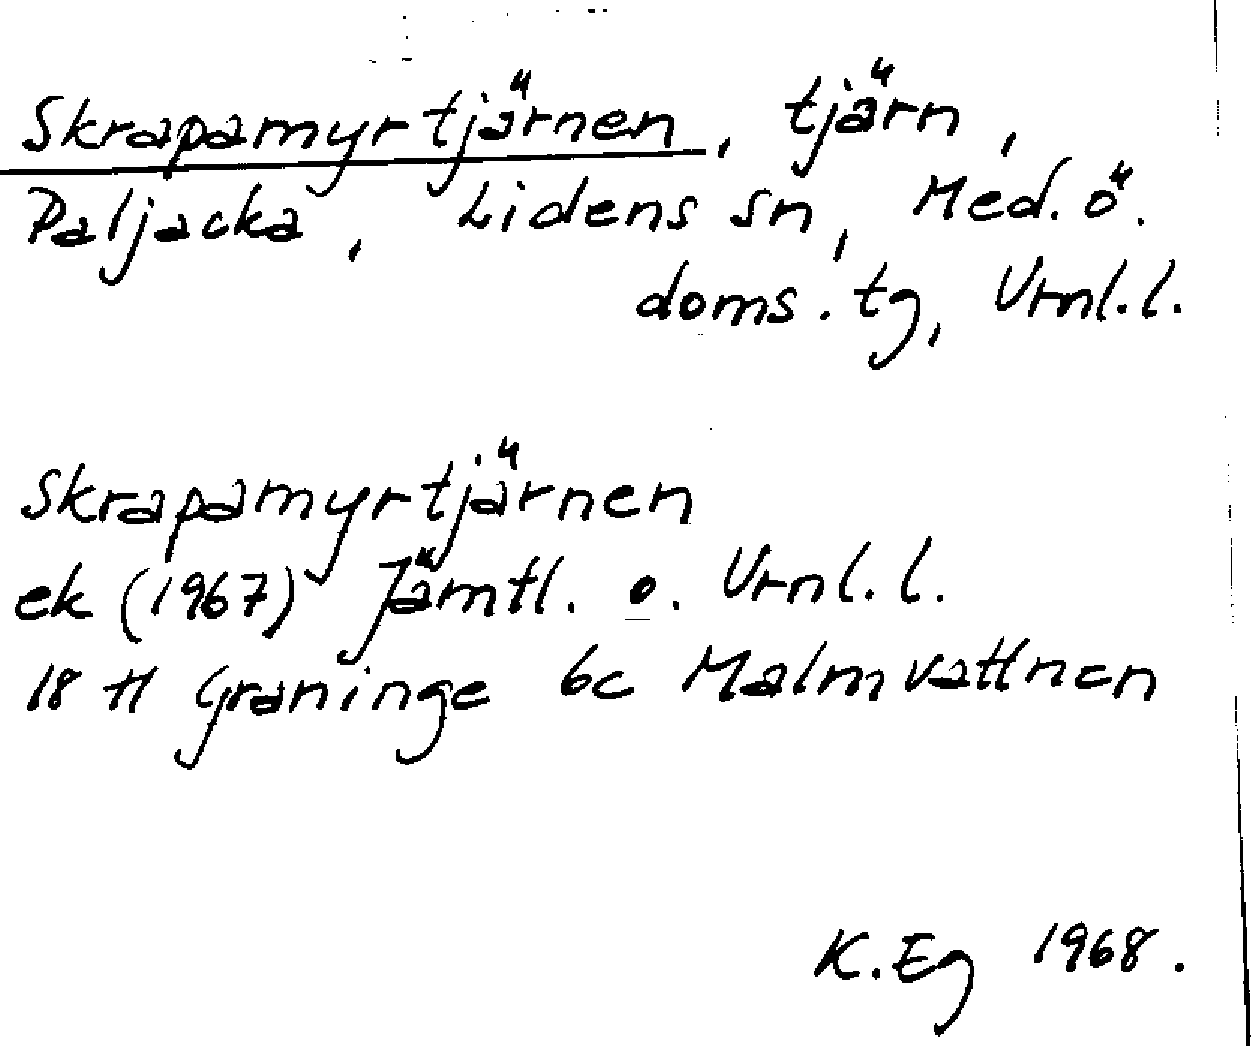 Skrapamyrtjärnen, tjärn,
Paljacka, Lidens sn, Med. ö.
doms. tg, Vrnl. l.
Skrapamyrtjärnen
ek (1967) Jämtl. o. Vrnl. l.
18 H Graninge 6c Malmvattnen
K. Eg 1968.